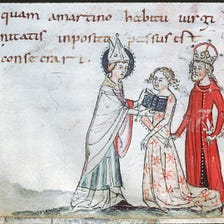 quam amartino habitu uirgi
nitatis inposito passus est
consecrari.